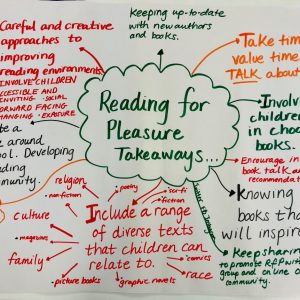 Careful and creative
approaches to
improving
reading environments
INVOLVE CHILDREN
ACCESSIBLE AND
INVITING · SOCIAL
FORWARD FACING
CHANGING · EXPOSURE
keeping up-to-date
with new authors
and books.
Take time
value time
TALK about
Reading for
Pleasure
Takeaways...
Involve
children
in choo
books.
Encourage in
book talk and
recommendat
te a
e around
ool. Developing
ding
munity.
Knowing
books tha
will inspire
Keep sharing
to promote RfP with
group and online co
community.
religion
· non-fiction
culture
· magazines
family
· picture books
· poetry
· sci-fi
· fiction
Include a range
of diverse texts
that children can
relate to.
· comics
race
· graphic novels